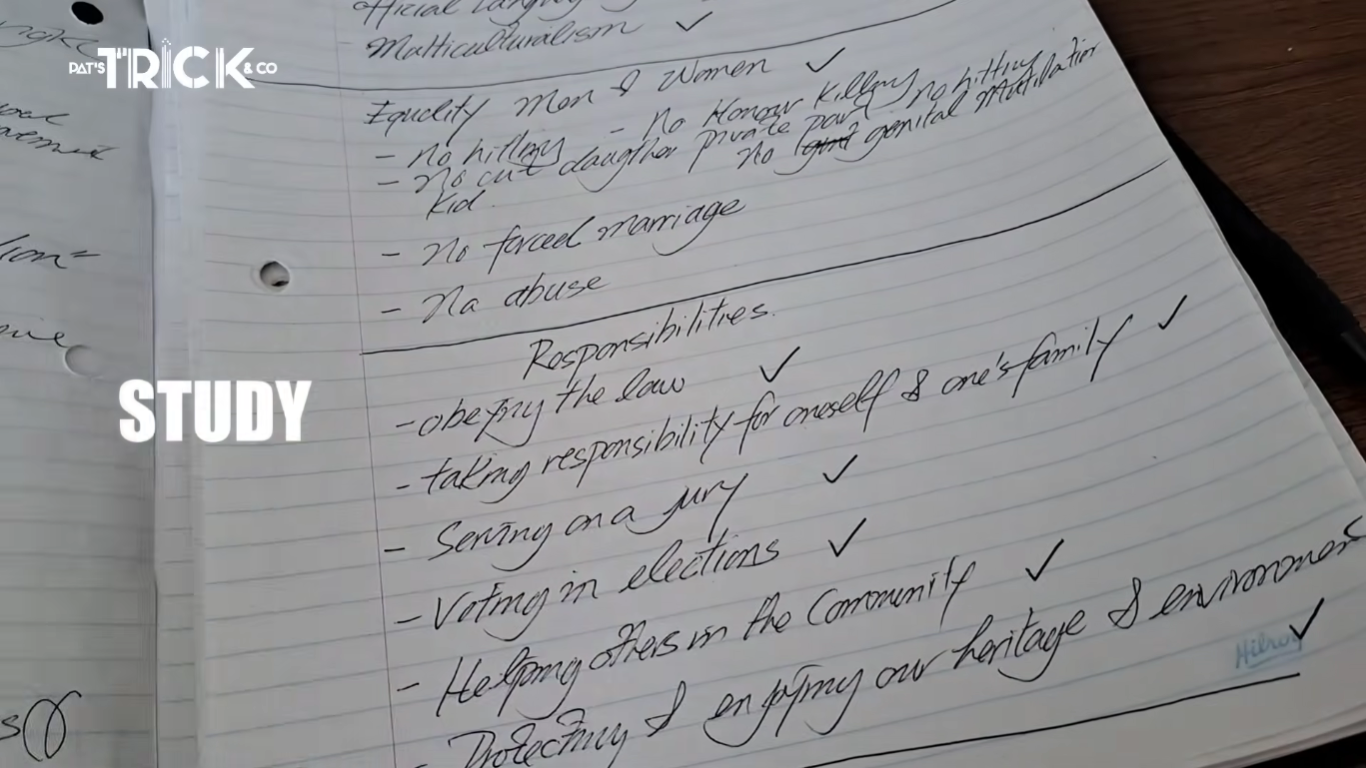 PAT'S TRICK & CO
STUDY
Multiculturalism ✓
Equality Men & Women ✓
- no hitting - no Honour killing no hitting
- no cut daugther private part no genital Mutilation
kid
- no forced marriage
- na abuse
Responsibilities.
- obeying the law ✓
- taking responsibility for oneself & one's family ✓
- Serving on a jury ✓
- Voting in elections ✓
- Helping others in the Community ✓
- Protecting & enjoying our heritage & environment ✓
Hilroy